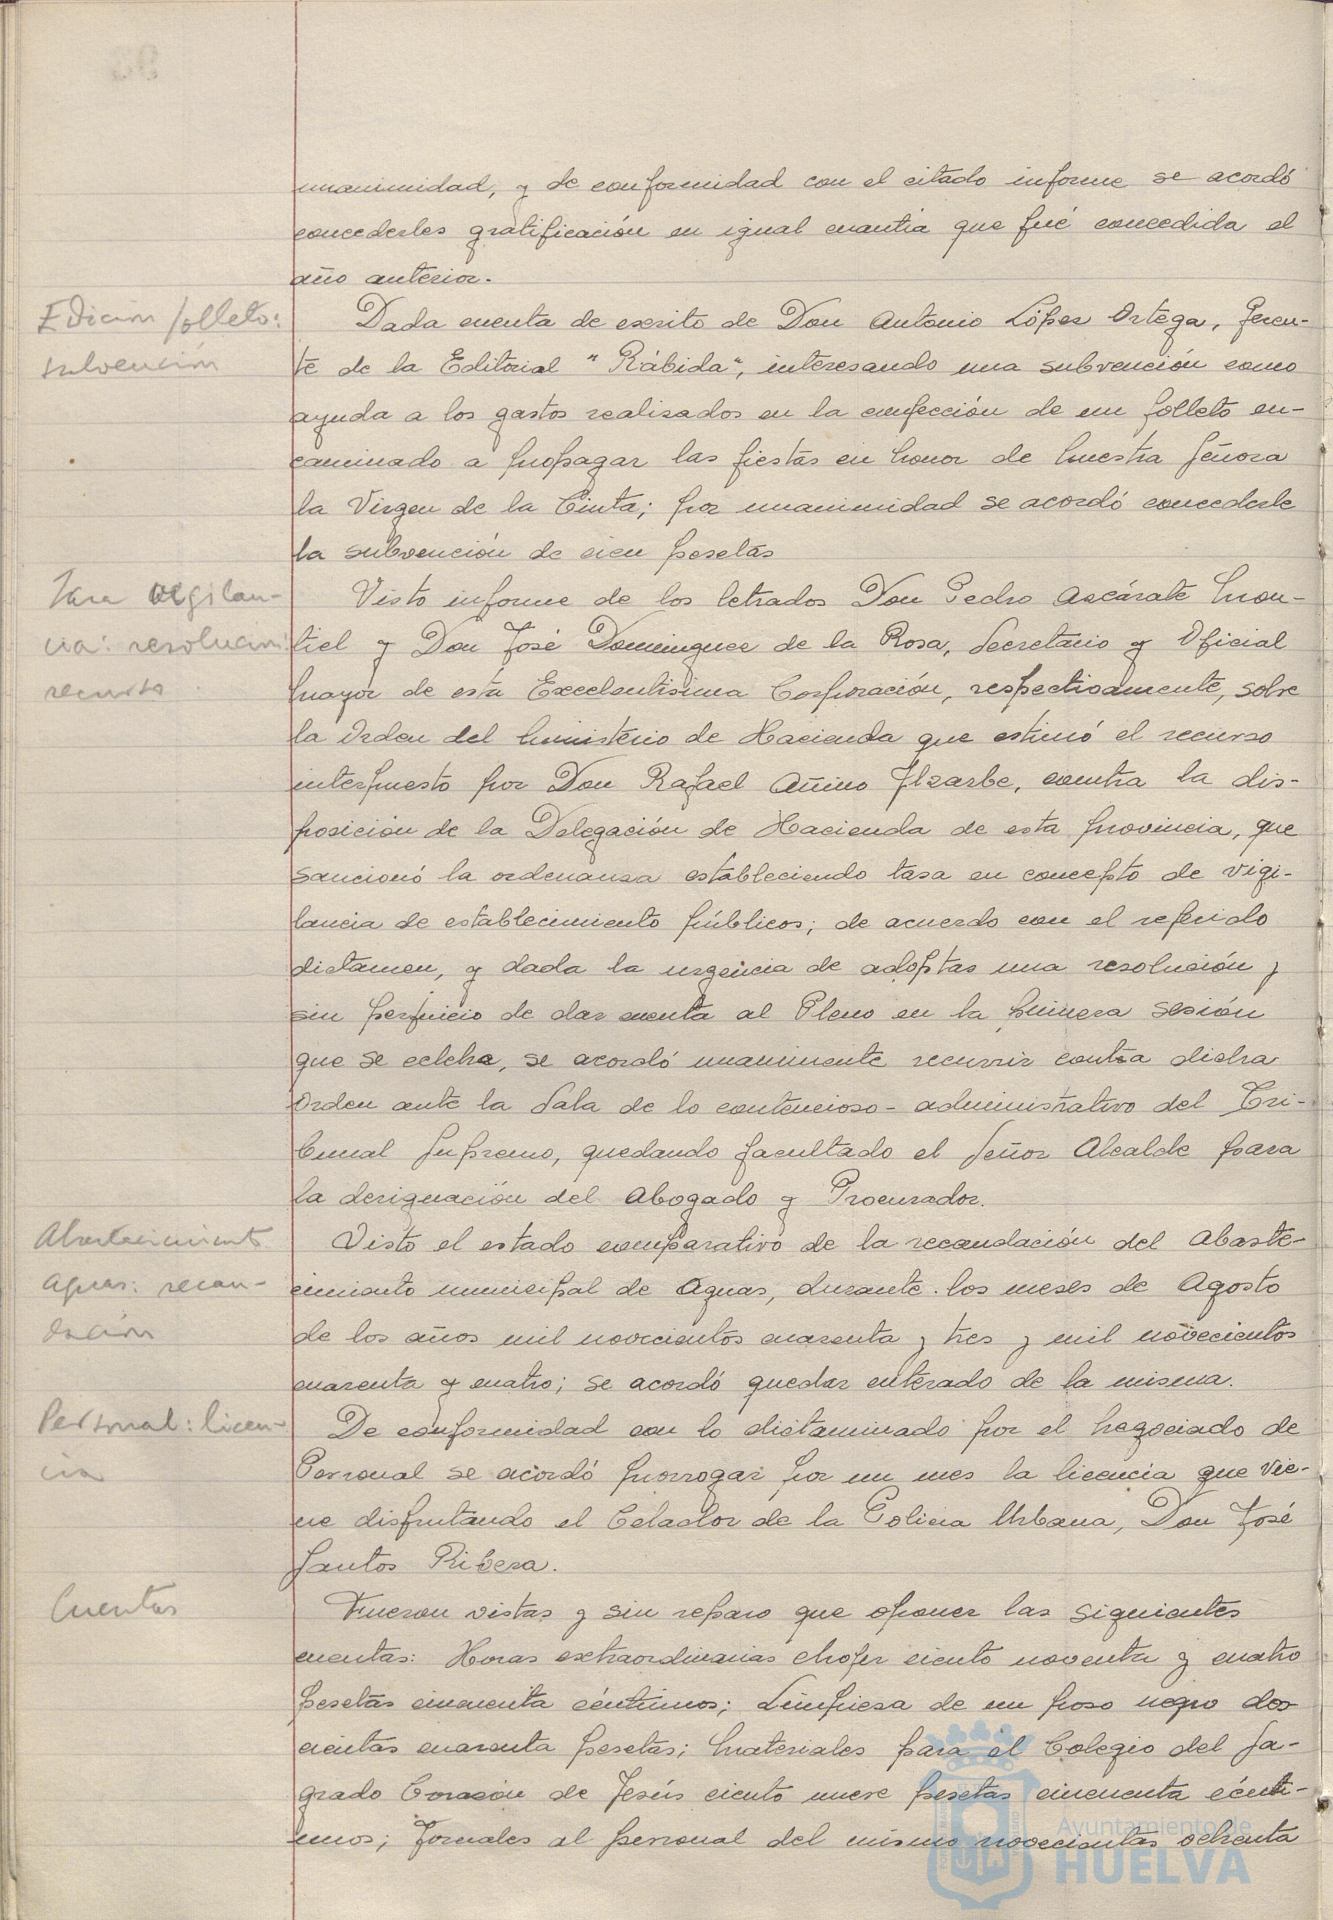 unanimidad, y de conformidad con el citado informe se acordó
concederles gratificación en igual cuantía que fué concedida el
año anterior.
Edición folleto:
subvención
Dada cuenta de escrito de Don Antonio López Ortega, Geren-
te de la Editorial "Rábida", interesando una subvención como
ayuda a los gastos realizados en la confección de un folleto en-
caminado a propagar las fiestas en honor de Nuestra Señora
la Virgen de la Cinta; por unanimidad se acordó concederle
la subvención de cien pesetas
Tasa vigilan-
cia: resolución
recurso
Visto informe de los letrados Don Pedro Azcárate Mon-
tiel y Don José Dominguez de la Rosa, Secretario y Oficial
Mayor de esta Excelentísima Corporación, respectivamente, sobre
la Orden del Ministerio de Hacienda que estimó el recurso
interpuesto por Don Rafael Añino Ilzarbe, contra la dis-
posición de la Delegación de Hacienda de esta provincia, que
sancionó la ordenanza estableciendo tasa en concepto de vigi-
lancia de establecimiento públicos; de acuerdo con el referido
dictamen, y dada la urgencia de adoptas una resolución y
sin perjuicio de dar cuenta al Pleno en la primera sesión
que se celebre, se acordó unanimente recurrir contra dicha
Orden ante la Sala de lo contencioso-administrativo del Tri-
bunal Supremo, quedando facultado el Señor Alcalde para
la designación del Abogado y Procurador.
Abastecimiento
aguas: recau-
dación
Visto el estado comparativo de la recaudación del Abaste-
cimiento municipal de Aguas, durante los meses de Agosto
de los años mil novecientos cuarenta y tres y mil novecientos
cuarenta y cuatro; se acordó quedar enterado de la misma.
Personal: licen-
cia
De conformidad con lo dictaminado por el Negociado de
Personal se acordó prorrogar por un mes la licencia que vie-
ne disfrutando el Celador de la Policia Urbana, Don José
Santos Ribera.
Cuentas
Fueron vistas y sin reparo que oponer las siguientes
cuentas: Horas extraordinarias chofer ciento noventa y cuatro
pesetas cincuenta céntimos; Limpieza de un pozo negro dos
cientas cuarenta pesetas; Materiales para el Colegio del Sa-
grado Corazón de Jesús ciento nueve pesetas cincuenta cénti-
mos; Jornales al personal del mismo novecientas ochenta
Ayuntamiento de
HUELVA